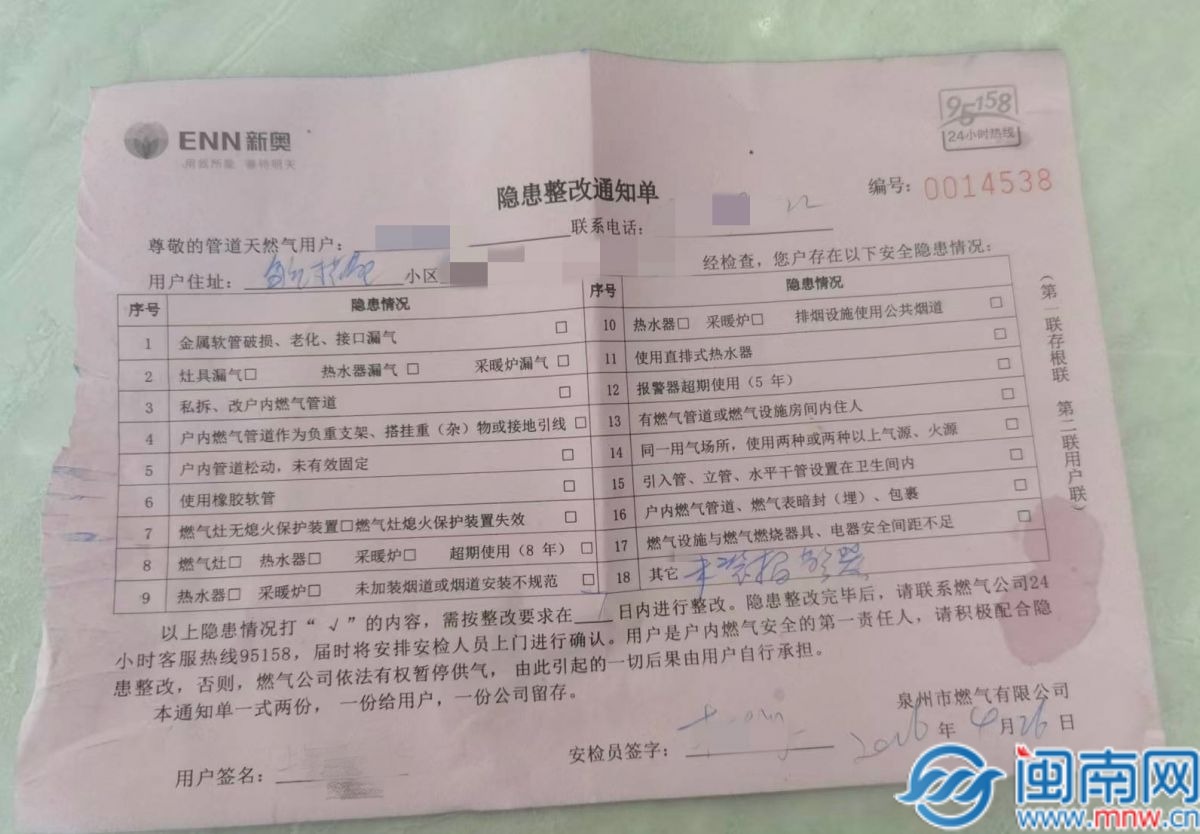 95158
24小时热线
ENN新奥
隐患整改通知单
编号：0014538
尊敬的管道天然气用户：
联系电话：
用户住址： 小区
经检查，您户存在以下安全隐患情况：
序号 隐患情况
1 金属软管破损、老化、接口漏气 □
2 灶具漏气□ 热水器漏气 □ 采暖炉漏气 □
3 私拆、改户内燃气管道 □
4 户内燃气管道作为负重支架、搭挂重（杂）物或接地引线 □
5 户内管道松动，未有效固定 □
6 使用橡胶软管 □
7 燃气灶无熄火保护装置□燃气灶熄火保护装置失效 □
8 燃气灶□ 热水器□ 采暖炉□ 超期使用（8 年） □
9 热水器□ 采暖炉□ 未加装烟道或烟道安装不规范 □
序号 隐患情况
10 热水器□ 采暖炉□ 排烟设施使用公共烟道 □
11 使用直排式热水器 □
12 报警器超期使用（5 年） □
13 有燃气管道或燃气设施房间内住人 □
14 同一用气场所，使用两种或两种以上气源、火源 □
15 引入管、立管、水平干管设置在卫生间内 □
16 户内燃气管道、燃气表暗封（埋）、包裹 □
17 燃气设施与燃气燃烧器具、电器安全间距不足 □
18 其它 未装报警器
（第一联存根联 第二联用户联）
以上隐患情况打“ √ ”的内容，需按整改要求在 日内进行整改。隐患整改完毕后，请联系燃气公司24
小时客服热线95158，届时将安排安检人员上门进行确认。用户是户内燃气安全的第一责任人，请积极配合隐
患整改，否则，燃气公司依法有权暂停供气， 由此引起的一切后果由用户自行承担。
本通知单一式两份， 一份给用户，一份公司留存。
泉州市燃气有限公司
安检员签字：
年 4 月 26 日
用户签名：
闽南网
www.mnw.cn